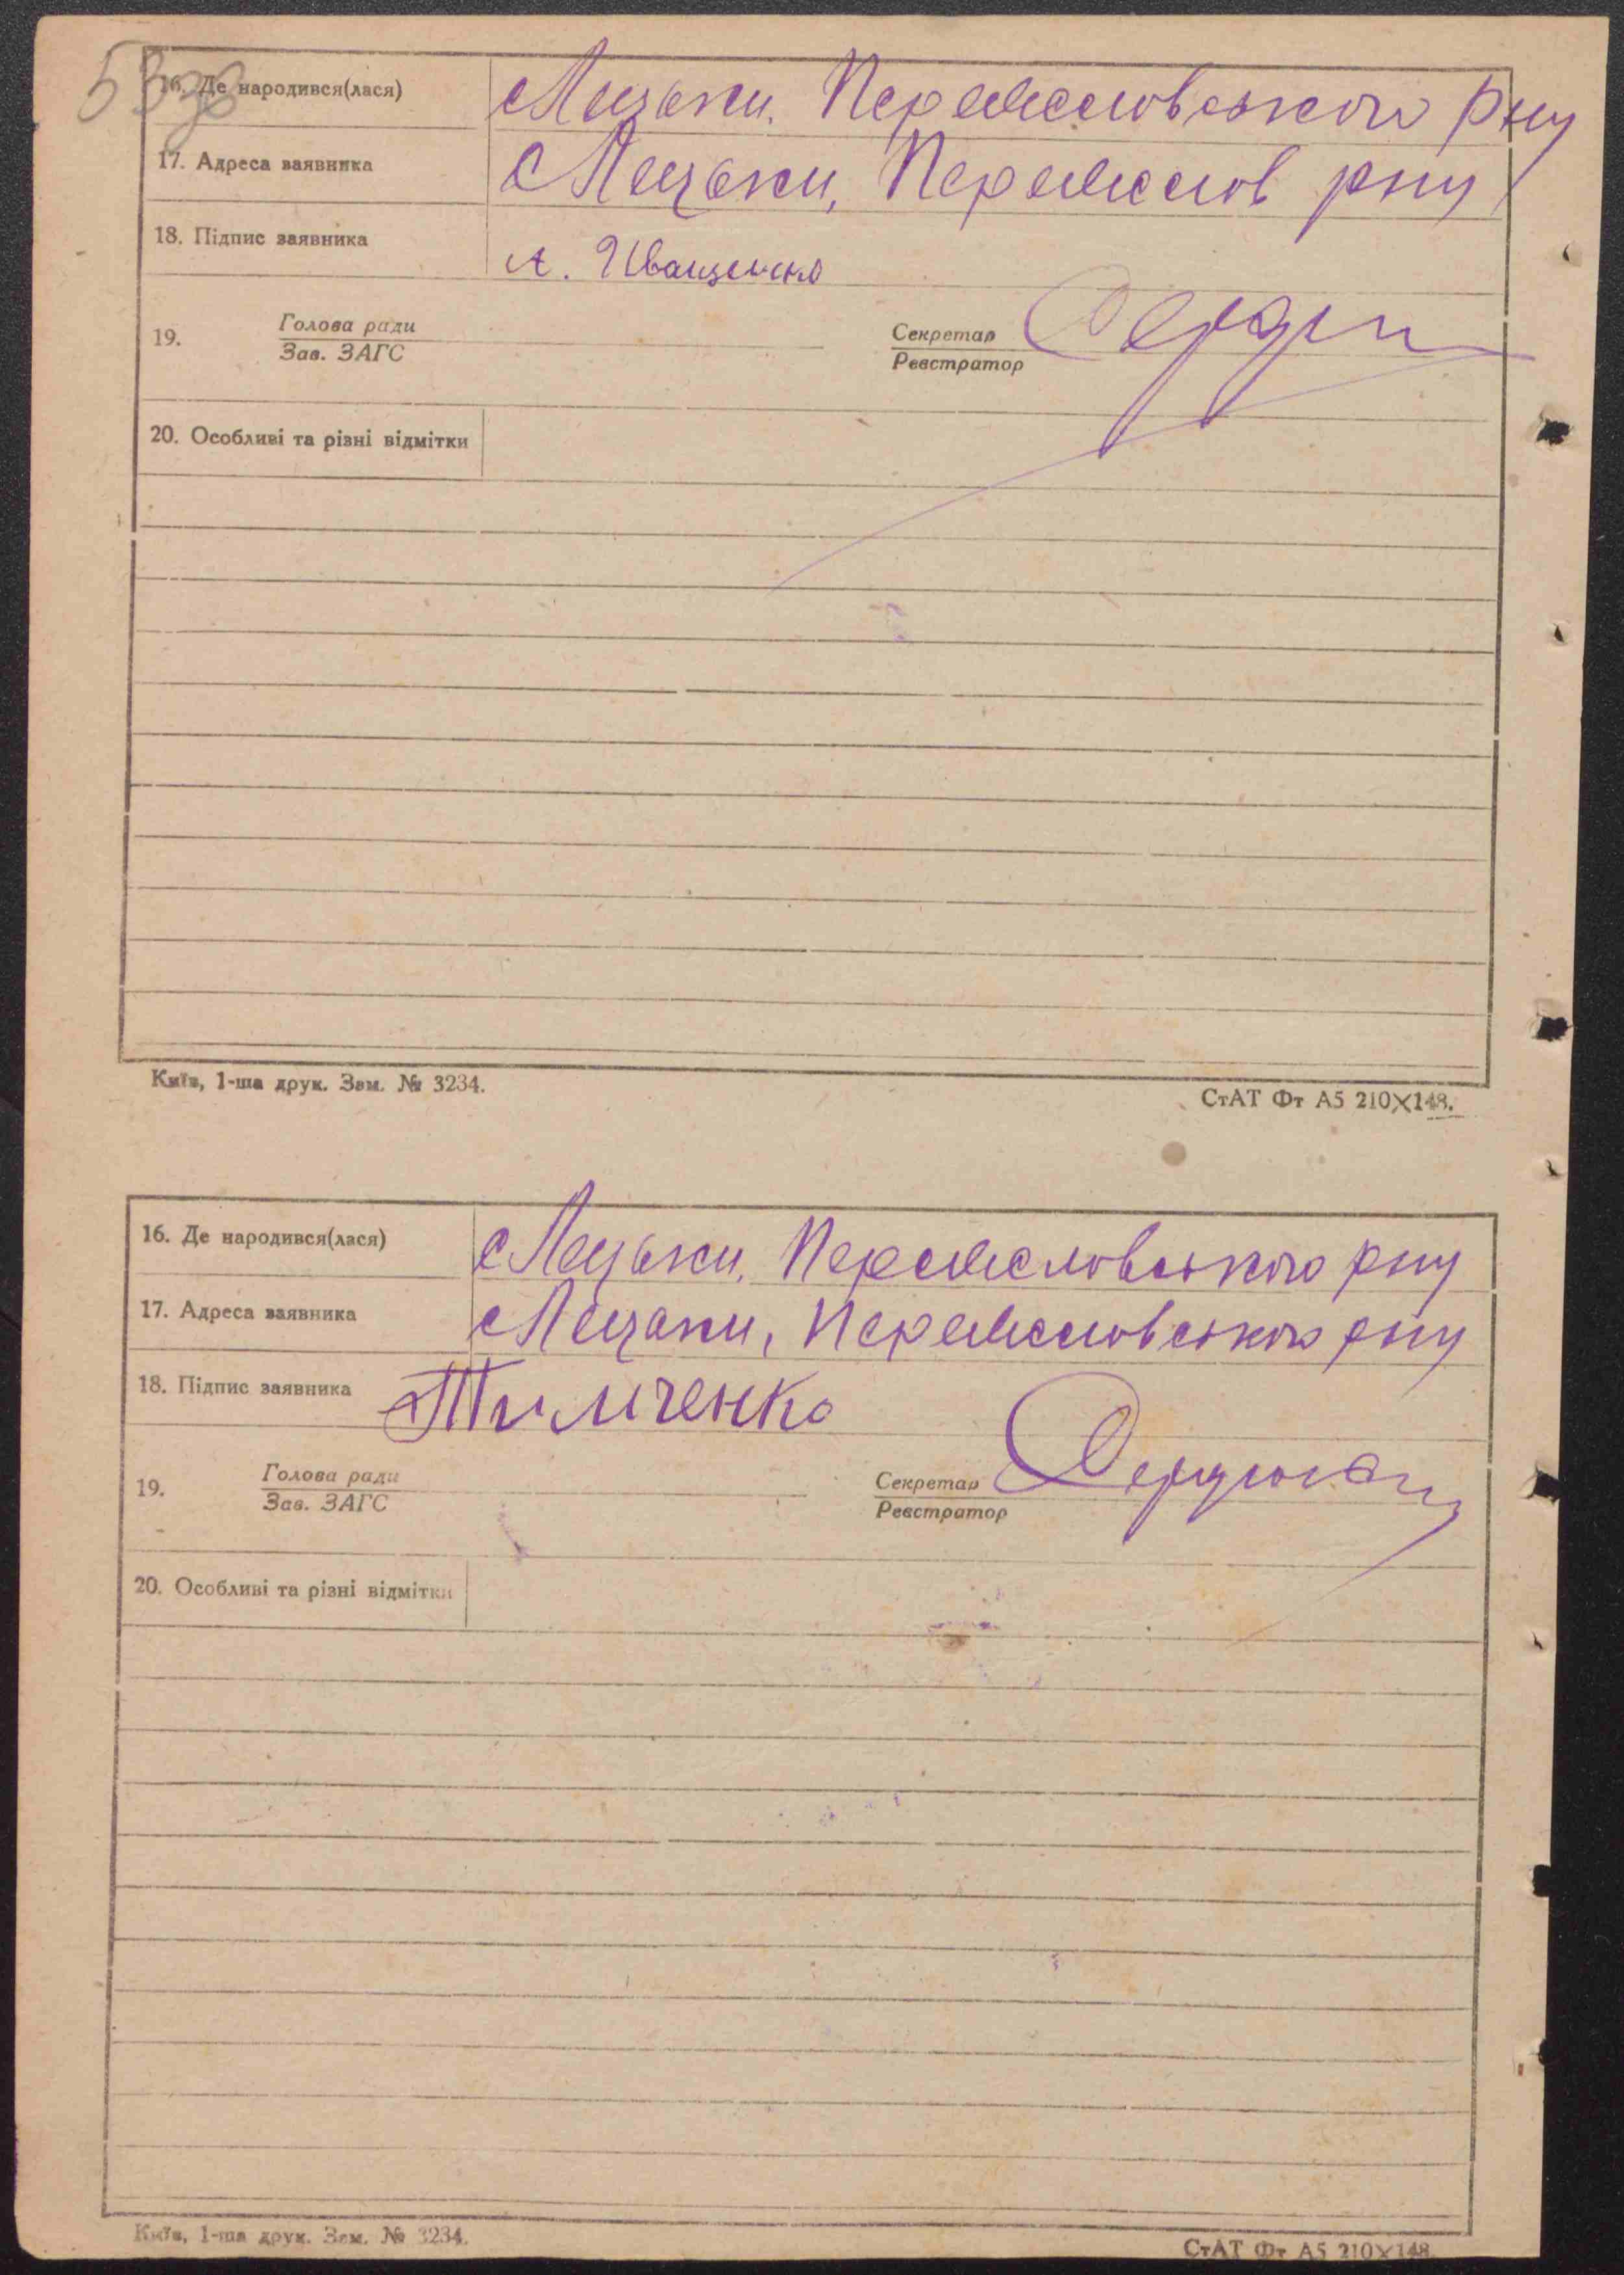 16. Де народився(лася) с Лецьки, Переяславського рну
17. Адреса заявника с Лецьки, Переяслов рну
18. Підпис заявника А. Иващенко
19. Голова ради Секретар
Зав. ЗАГС Реєстратор
20. Особливі та різні відмітки
Київ, 1-ша друк. Зам. № 3234.
СтАТ Фт А5 210×148.
16. Де народився(лася) с Лецьки, Переясловського рну
17. Адреса заявника с Лецьки, Переясловського рну
18. Підпис заявника Тимченко
19. Голова ради Секретар
Зав. ЗАГС Реєстратор
20. Особливі та різні відмітки
Київ, 1-ша друк. Зам. № 3234.
СтАТ Фт А5 210×148.